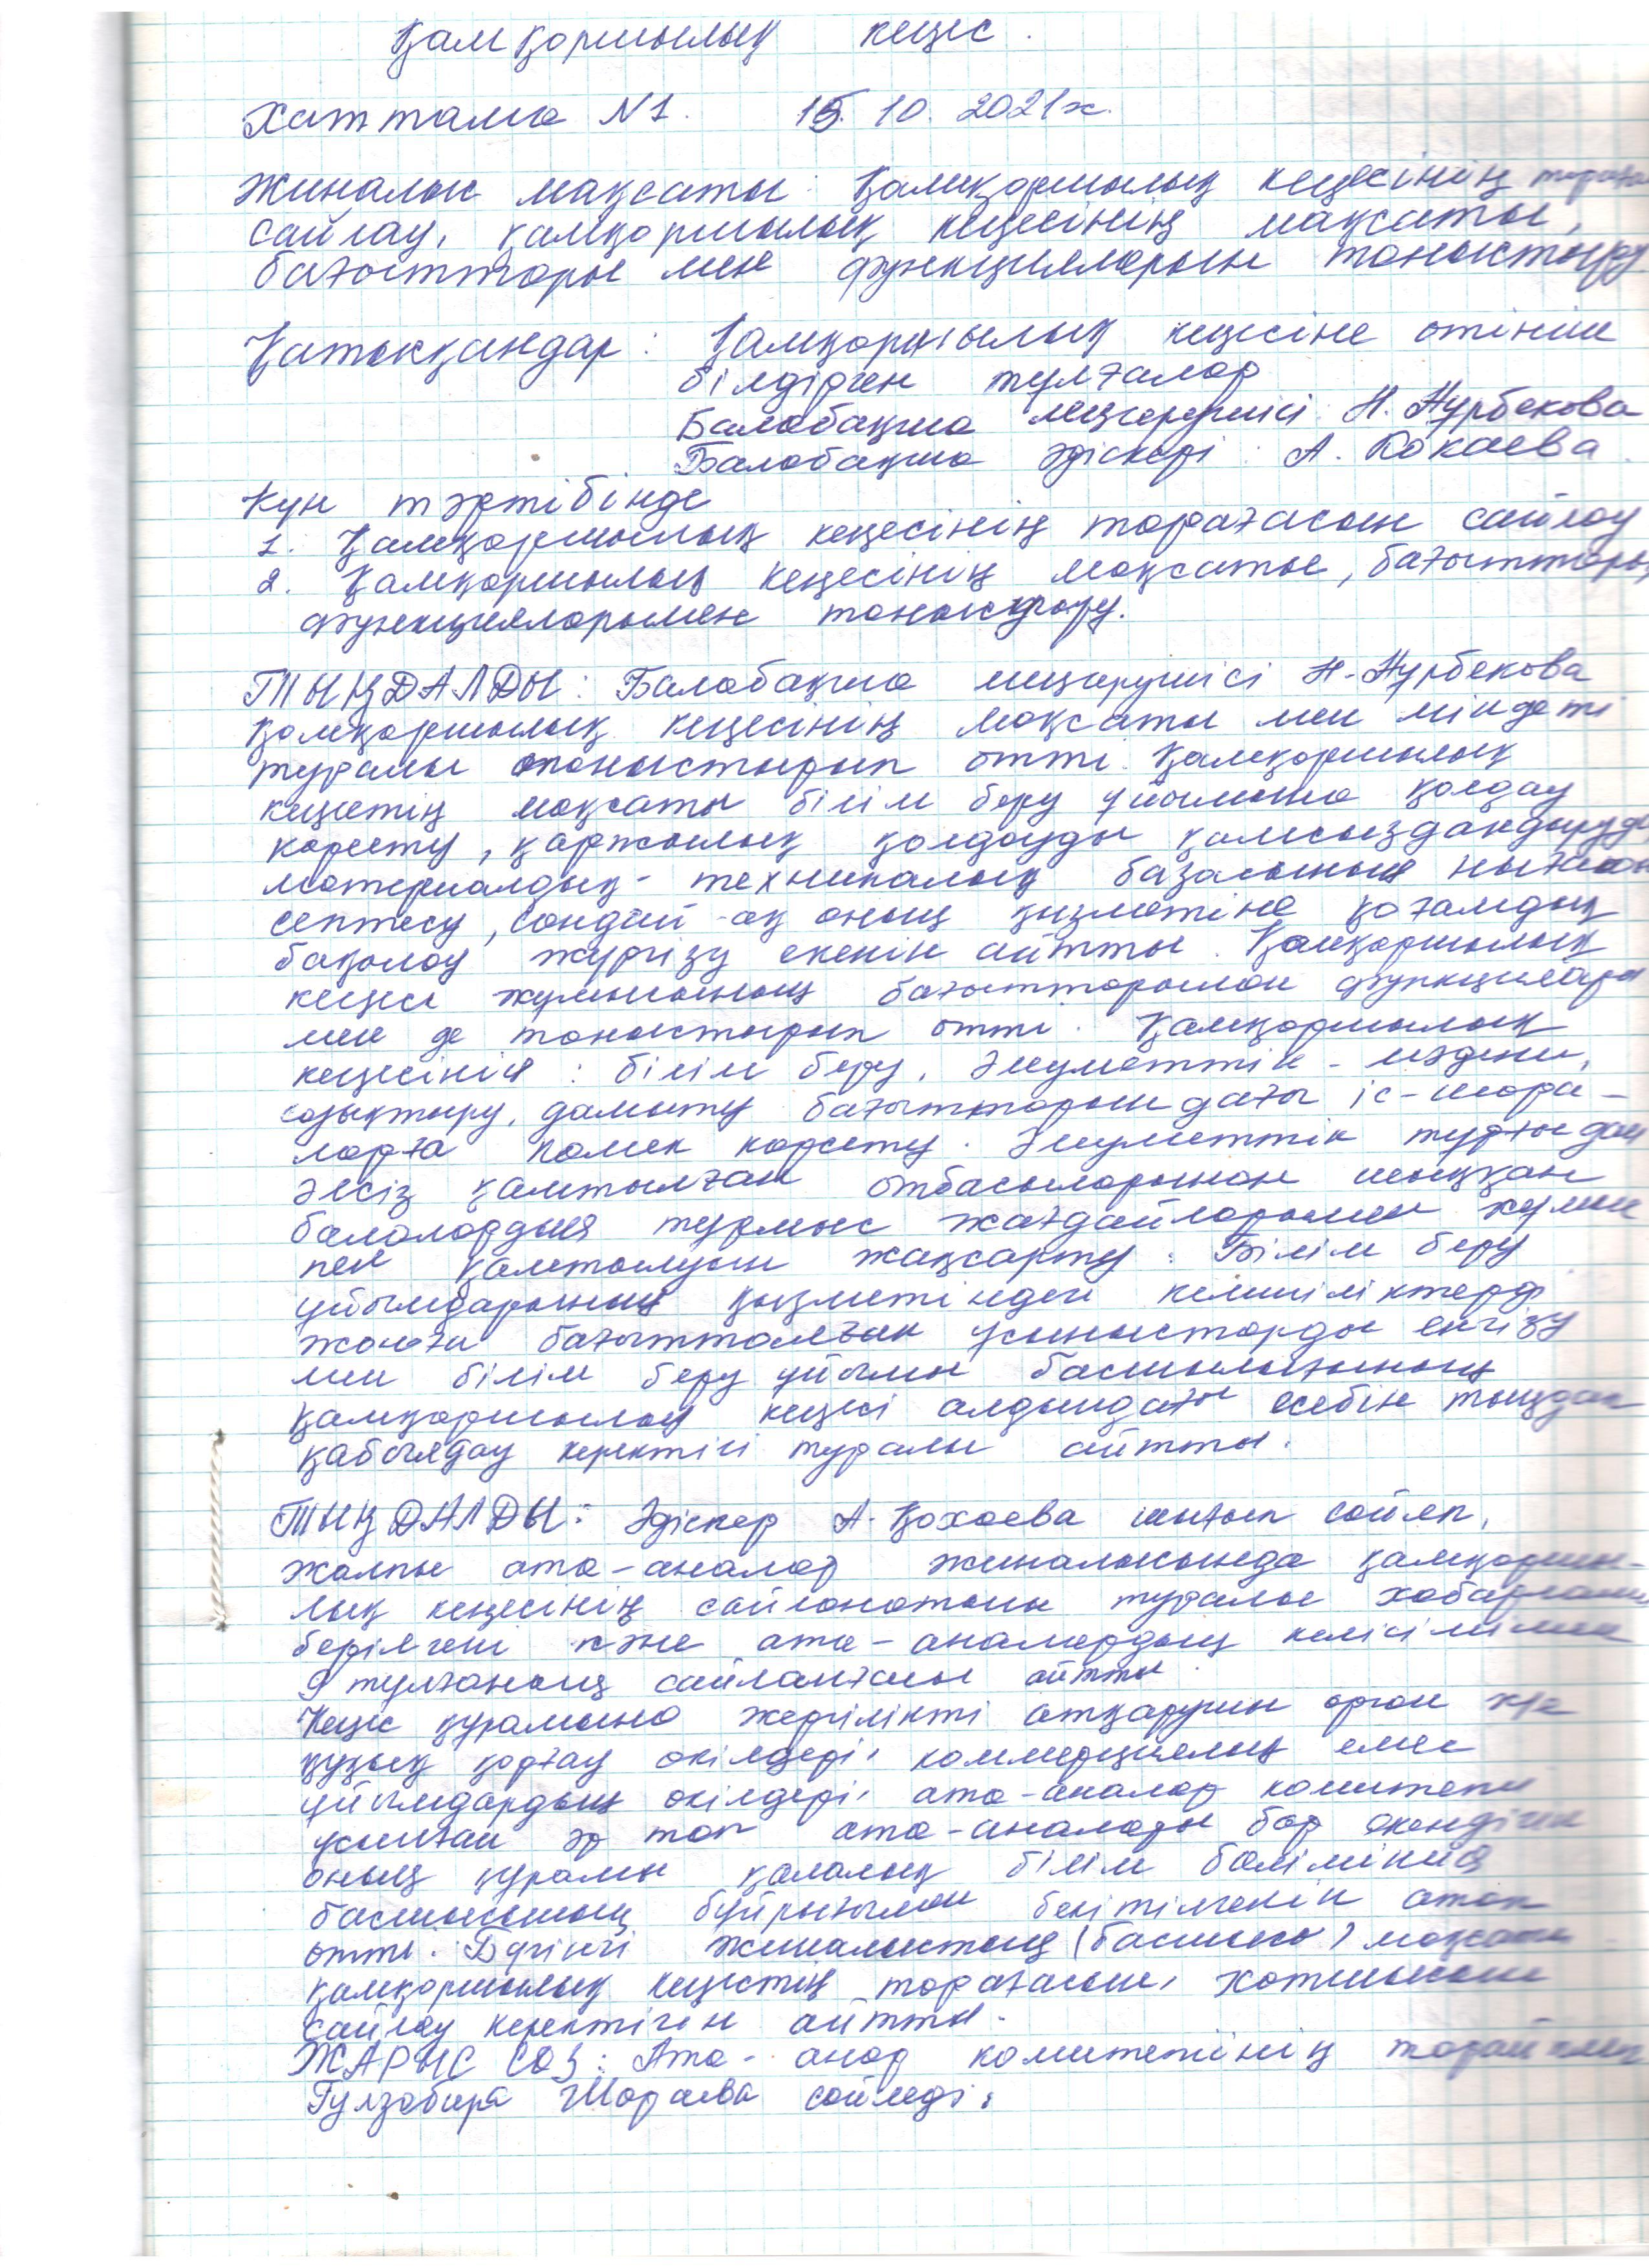 Қамқоршылық кеңес.
Хаттама №1. 15. 10. 2021ж.
Жиналыс мақсаты: Қамқоршылық кеңесінің
сайлау, қамқоршылық кеңесінің мақсаты,
бағыттары мен функцияларын таныстыру
Қатысқандар: Қамқоршылық кеңесіне өтініш
білдірген тұлғалар
Балабақша меңгерушісі: Н. Нурбекова
Балабақша әдіскері: А. Кокаева.
Күн тәртібінде
1. Қамқоршылық кеңесінің төрағасын сайлау
2. Қамқоршылық кеңесінің мақсаты, бағыттары,
функцияларымен таныстыру.
ТЫҢДАЛДЫ: Балабақша меңгерушісі Н. Нурбекова
қамқоршылық кеңесінің мақсаты мен міндеті
туралы таныстырып өтті. Қамқоршылық
кеңестің мақсаты білім беру ұйымына қолдау
көрсету, қаржылық қолдауды қамсыздандыруда
материалдық-техникалық базасының
септесу, сондай-ақ оның қызметіне қоғамдық
бақылау жүргізу екенін айтты. Қамқоршылық
кеңесі жұмысының бағыттарымен функциялары
мен де таныстырып өтті. Қамқоршылық
кеңесінің: білім беру, әлеуметтік-мәдени,
сауықтыру, дамыту бағыттарындағы іс-шара-
ларға көмек көрсету. Әлеуметтік тұрғыдан
әлсіз қамтылған отбасыларынан шыққан
балалардың тұрмыс жағдайларымен жұмыс
пен қамтылуын жақсарту. Білім беру
ұйымдарының қызметіндегі кемшіліктерді
жоюға бағытталған ұсыныстарды енгізу
мен білім беру ұйымы басшылығының
қамқоршылық кеңесі алдындағы есебін тыңдап
қабылдау керектігі туралы айтты.
ТЫҢДАЛДЫ: Әдіскер А. Қокаева шығып сөйлеп,
жалпы ата-аналар жиналысында қамқоршы-
лық кеңесінің сайланатыны туралы хабарлама
берілгені және ата-аналардың келісімімен
9 тұлғаның сайланғаны айтты.
Кеңес құрамына жергілікті атқарушы орган ж/е
құқық қорғау өкілдері, коммерциялық емес
ұйымдардың өкілдері, ата-аналар комитеті
ұсынған әр топ ата-аналары бар екендігін
оның құрамы қалалық білім бөлімінің
басшысының бұйрығымен бекітілгенін атап
өтті. Бүгінгі жиналыстың (басшысы) мақсаты
қамқоршылық кеңестің төрағасын, хатшысын
сайлау керектігін айтты.
ЖАРЫС СӨЗ: Ата-анар комитетінің төрайымы
Гулзабира Шораева сөйледі: